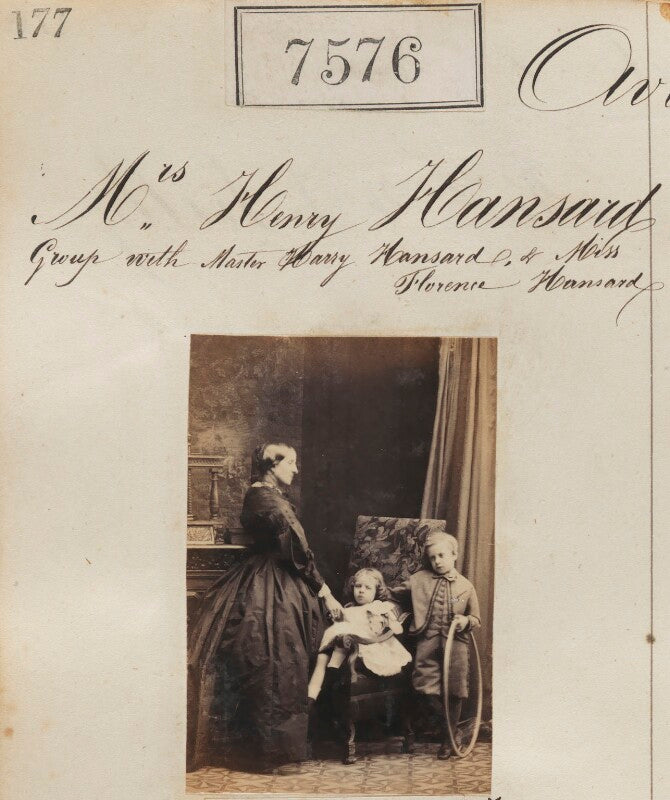 177
7576
Mrs Henry Hansard
Group with Master Harry Hansard, & Miss
Florence Hansard